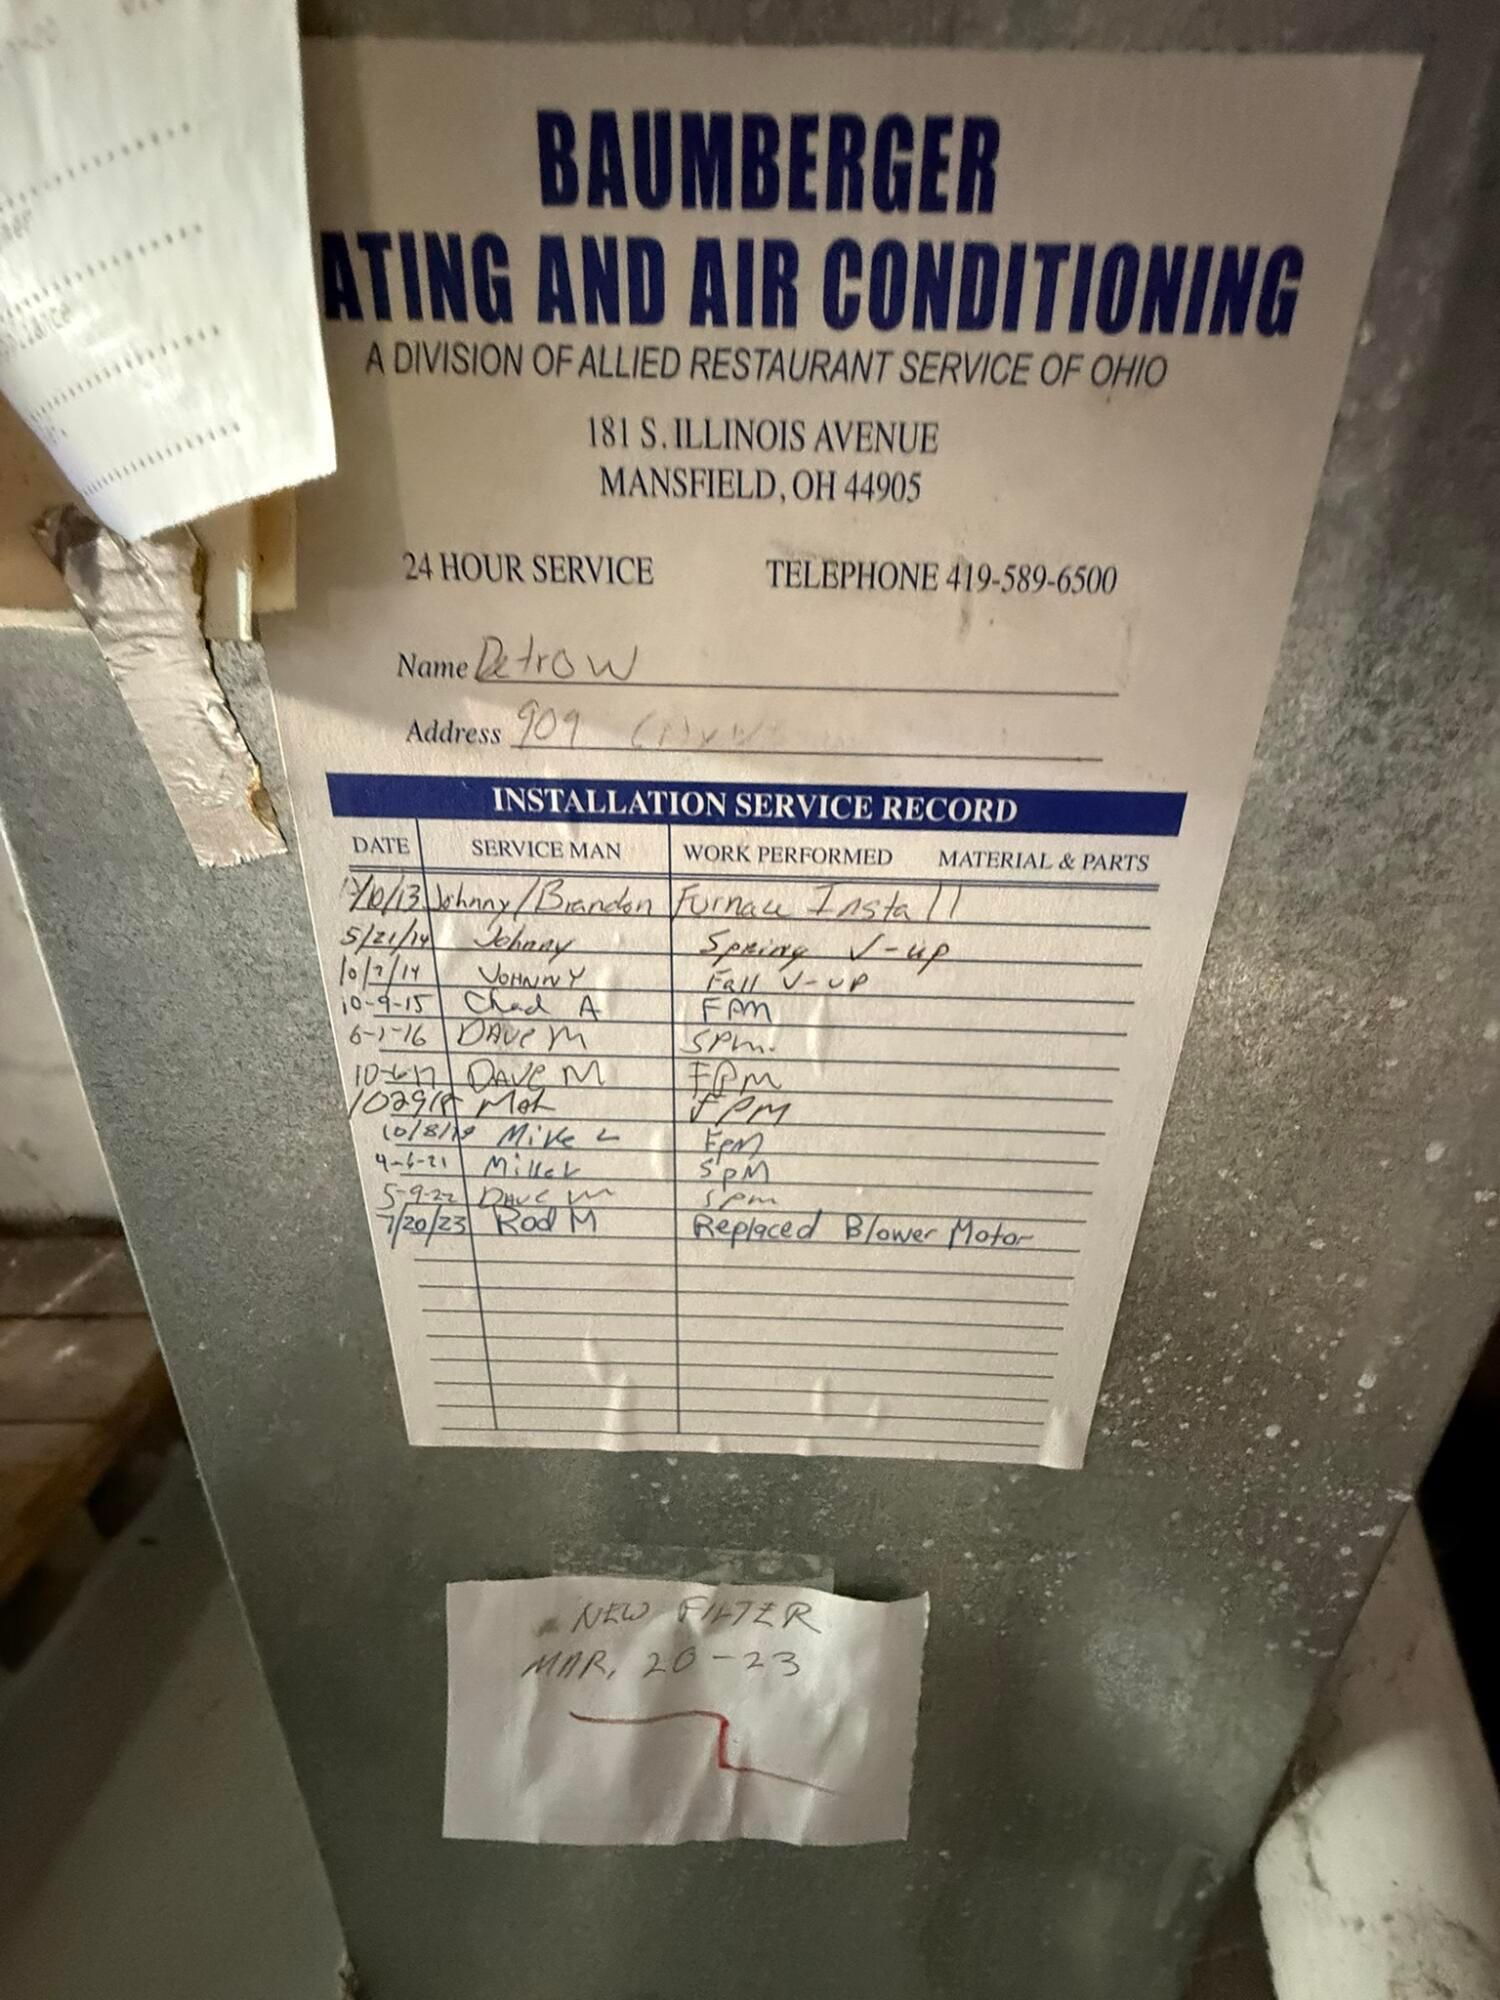 BAUMBERGER
ATING AND AIR CONDITIONING
A DIVISION OF ALLIED RESTAURANT SERVICE OF OHIO
181 S. ILLINOIS AVENUE
MANSFIELD, OH 44905
24 HOUR SERVICE TELEPHONE 419-589-6500
Name Detrow
Address 909
INSTALLATION SERVICE RECORD
DATE SERVICE MAN WORK PERFORMED MATERIAL & PARTS
Johnny/Brandon Furnace Install
5/21/14 Johnny Spring V-up
10/7/14 JOHNNY Fall V-UP
10-9-15 Chad A FPM
6-1-16 DAVE M SPM.
10-6-17 DAVE M FPM
102918 FPM
10/8/19 Mike L FPM
4-6-21 Mike L SPM
5-9-22 DAVE M SPM
7/20/23 Rod M Replaced Blower Motor
NEW FILTER
MAR, 20-23